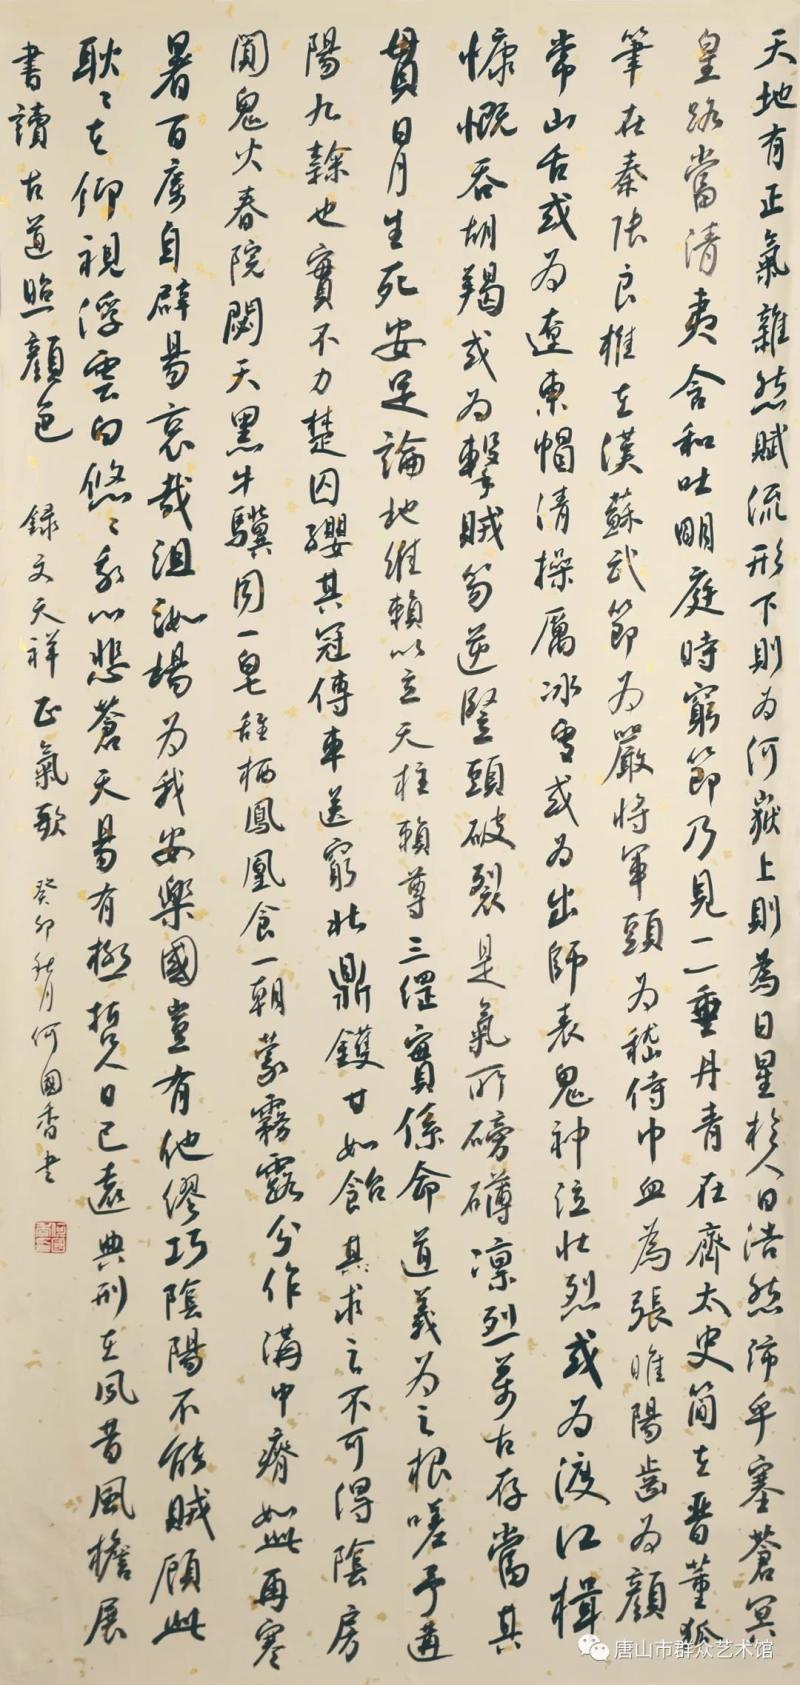 天地有正氣雜然賦流形下則為河嶽上則為日星於人曰浩然沛乎塞蒼冥
皇路當清夷含和吐明庭時窮節乃見一一垂丹青在齊太史簡在晉董狐
筆在秦張良椎在漢蘇武節為嚴將軍頭為嵇侍中血為張睢陽齒為顏
常山舌或為遼東帽清操厲冰雪或為出師表鬼神泣壯烈或為渡江楫
慷慨吞胡羯或為擊賊笏逆豎頭破裂是氣所磅礴凜烈萬古存當其
貫日月生死安足論地維賴以立天柱賴尊三綱實係命道義為之根嗟予遘
陽九隸也實不力楚囚纓其冠傳車送窮北鼎鑊甘如飴其求之不可得陰房
闃鬼火春院閟天黑牛驥同一皂雞栖鳳凰食一朝蒙霧露分作溝中瘠如此再寒
暑百癘自辟易哀哉沮洳場為我安樂國豈有他繆巧陰陽不能賊顧此
耿耿在仰視浮雲白悠悠我心悲蒼天曷有極哲人日已遠典刑在夙昔風檐展
書讀古道照顏色 錄文天祥正氣歌 癸卯秋月何國香書
唐山市群众艺术馆